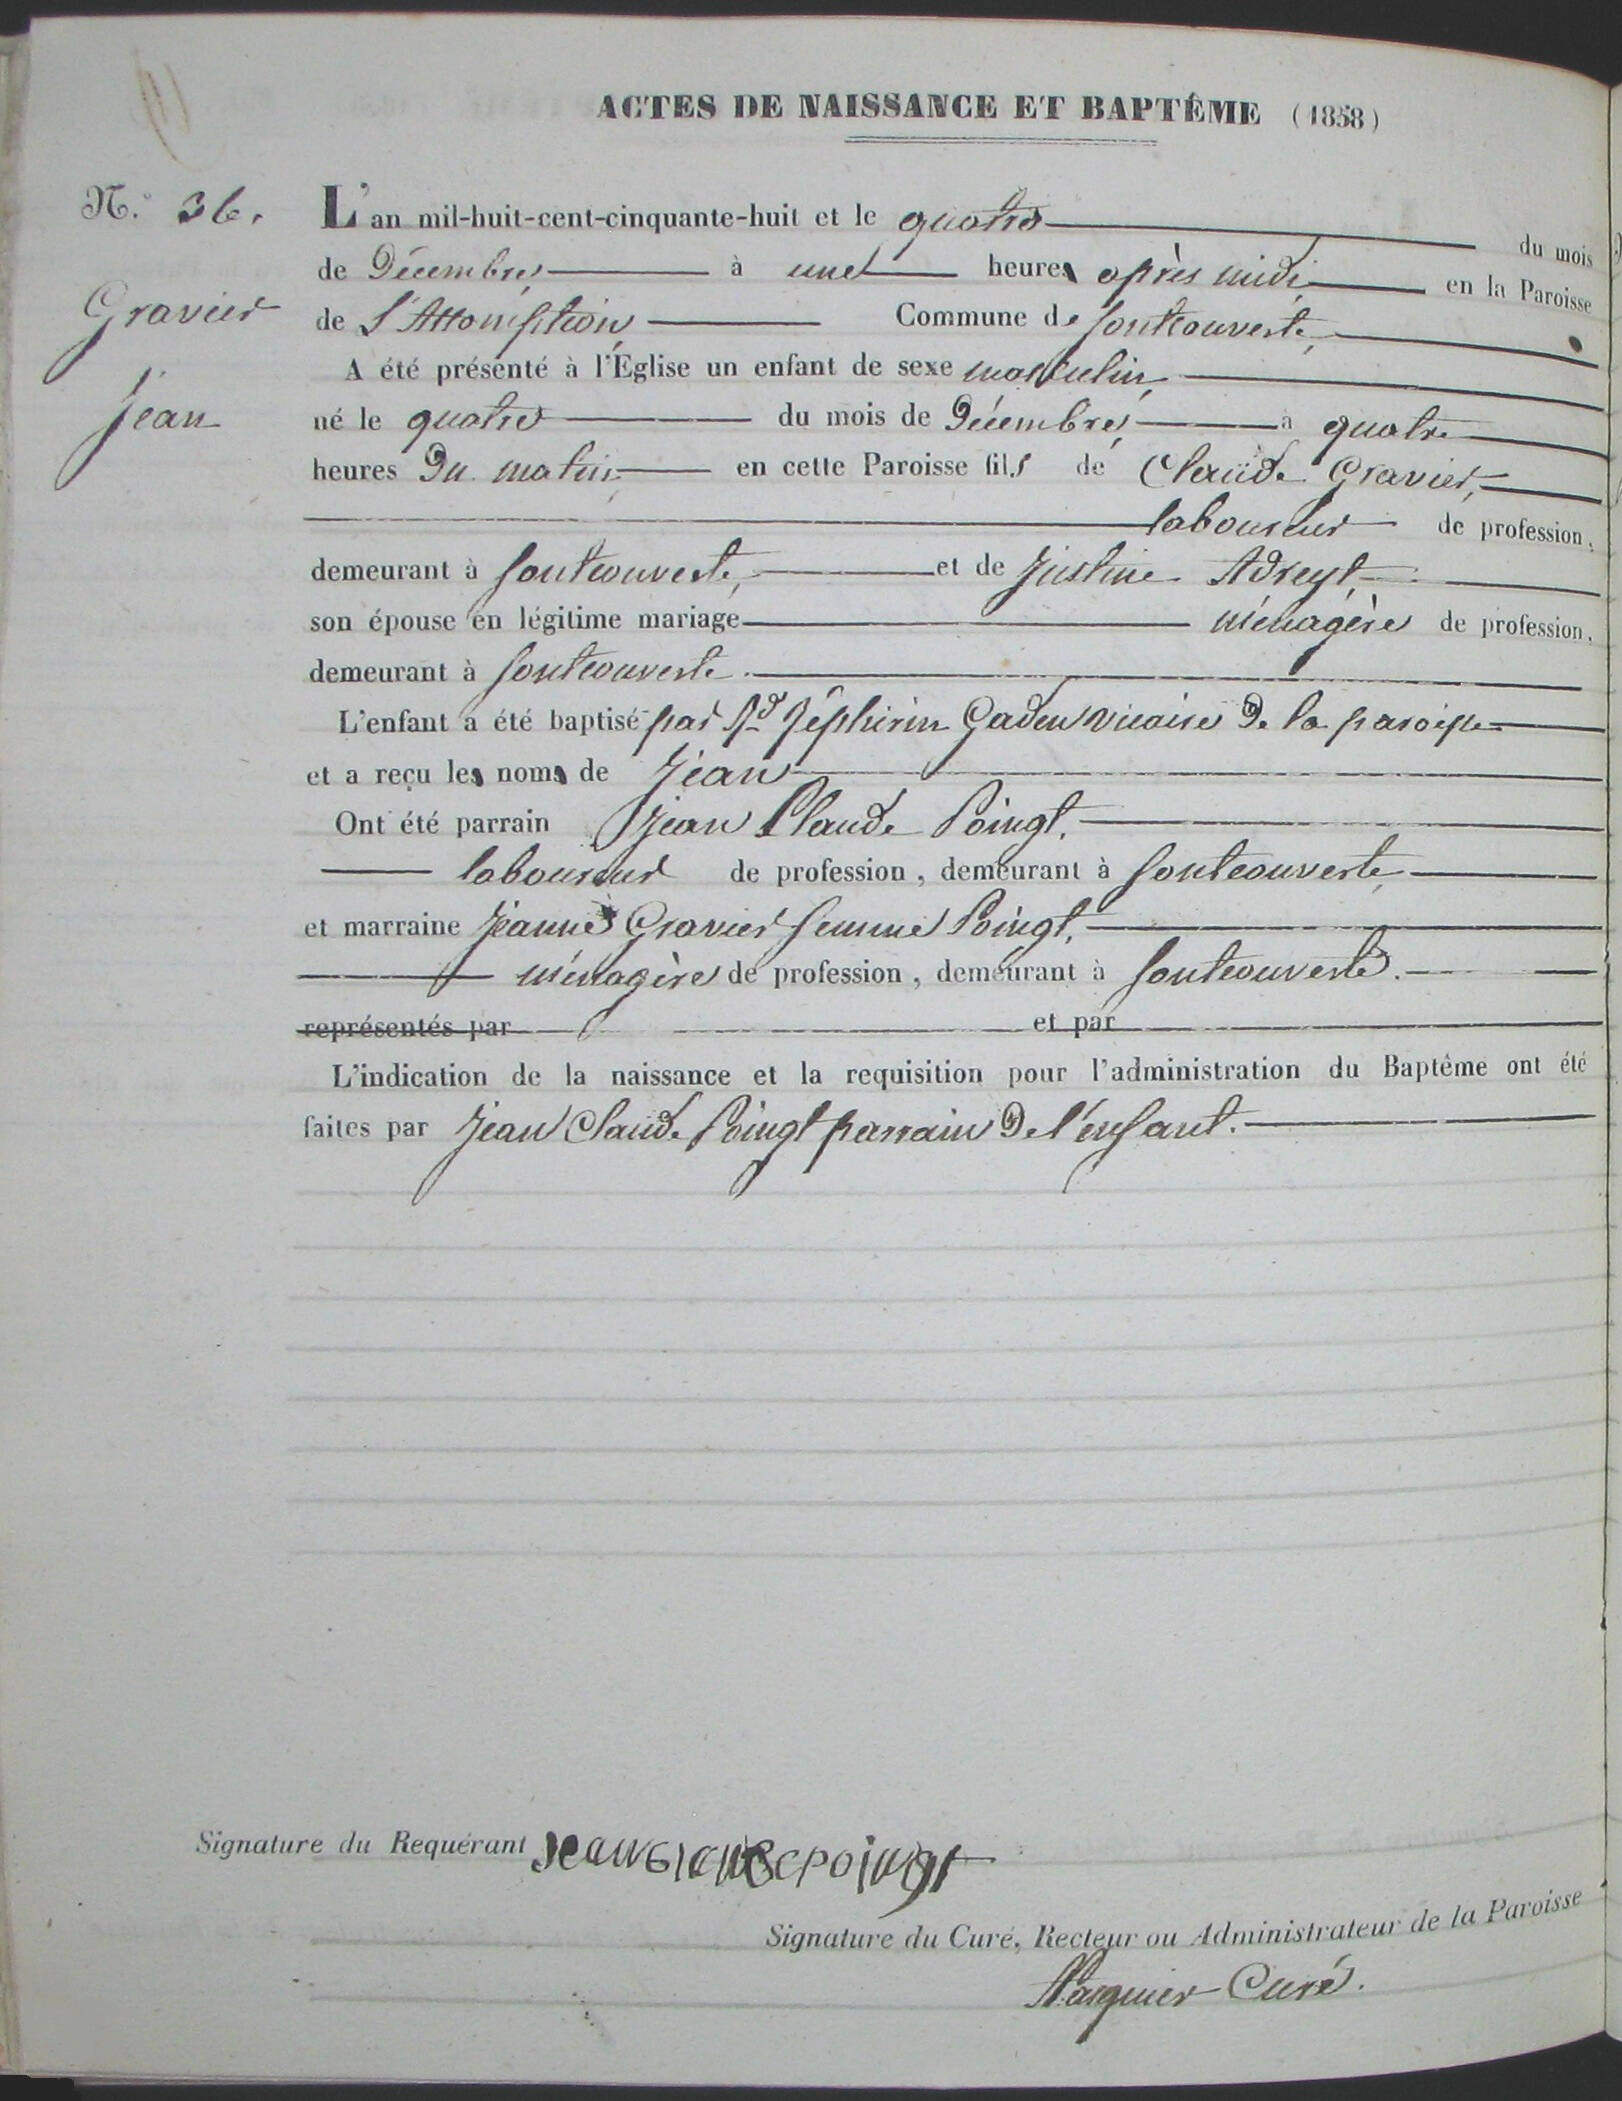 ACTES DE NAISSANCE ET BAPTÊME (1858)
N.° 36.
Gravier
Jean
L'an mil-huit-cent-cinquante-huit et le quatre du mois
de Décembre, à une heure après midi en la Paroisse
de l'Assomption Commune de fontcouverte,
A été présenté à l'Église un enfant de sexe masculin,
né le quatre du mois de Décembre, à quatre
heures Du matin, en cette Paroisse fils de Claude Gravier,
laboureur de profession,
demeurant à fontcouverte, et de Justine Adreyt,
son épouse en légitime mariage ménagère de profession,
demeurant à fontcouverte.
L'enfant a été baptisé par Rd Zéphirin Gaden vicaire De la paroisse
et a reçu le nom de Jean
Ont été parrain Jean Claude Poingt,
laboureur de profession, demeurant à fontcouverte,
et marraine Jeanne Gravier femme Poingt,
ménagère de profession, demeurant à fontcouverte.
représentés par et par
L'indication de la naissance et la requisition pour l'administration du Baptême ont été
faites par Jean Claude Poingt parrain De l'enfant.
Signature du Requérant Jean Claude Poingt
Signature du Curé, Recteur ou Administrateur de la Paroisse
Curé.